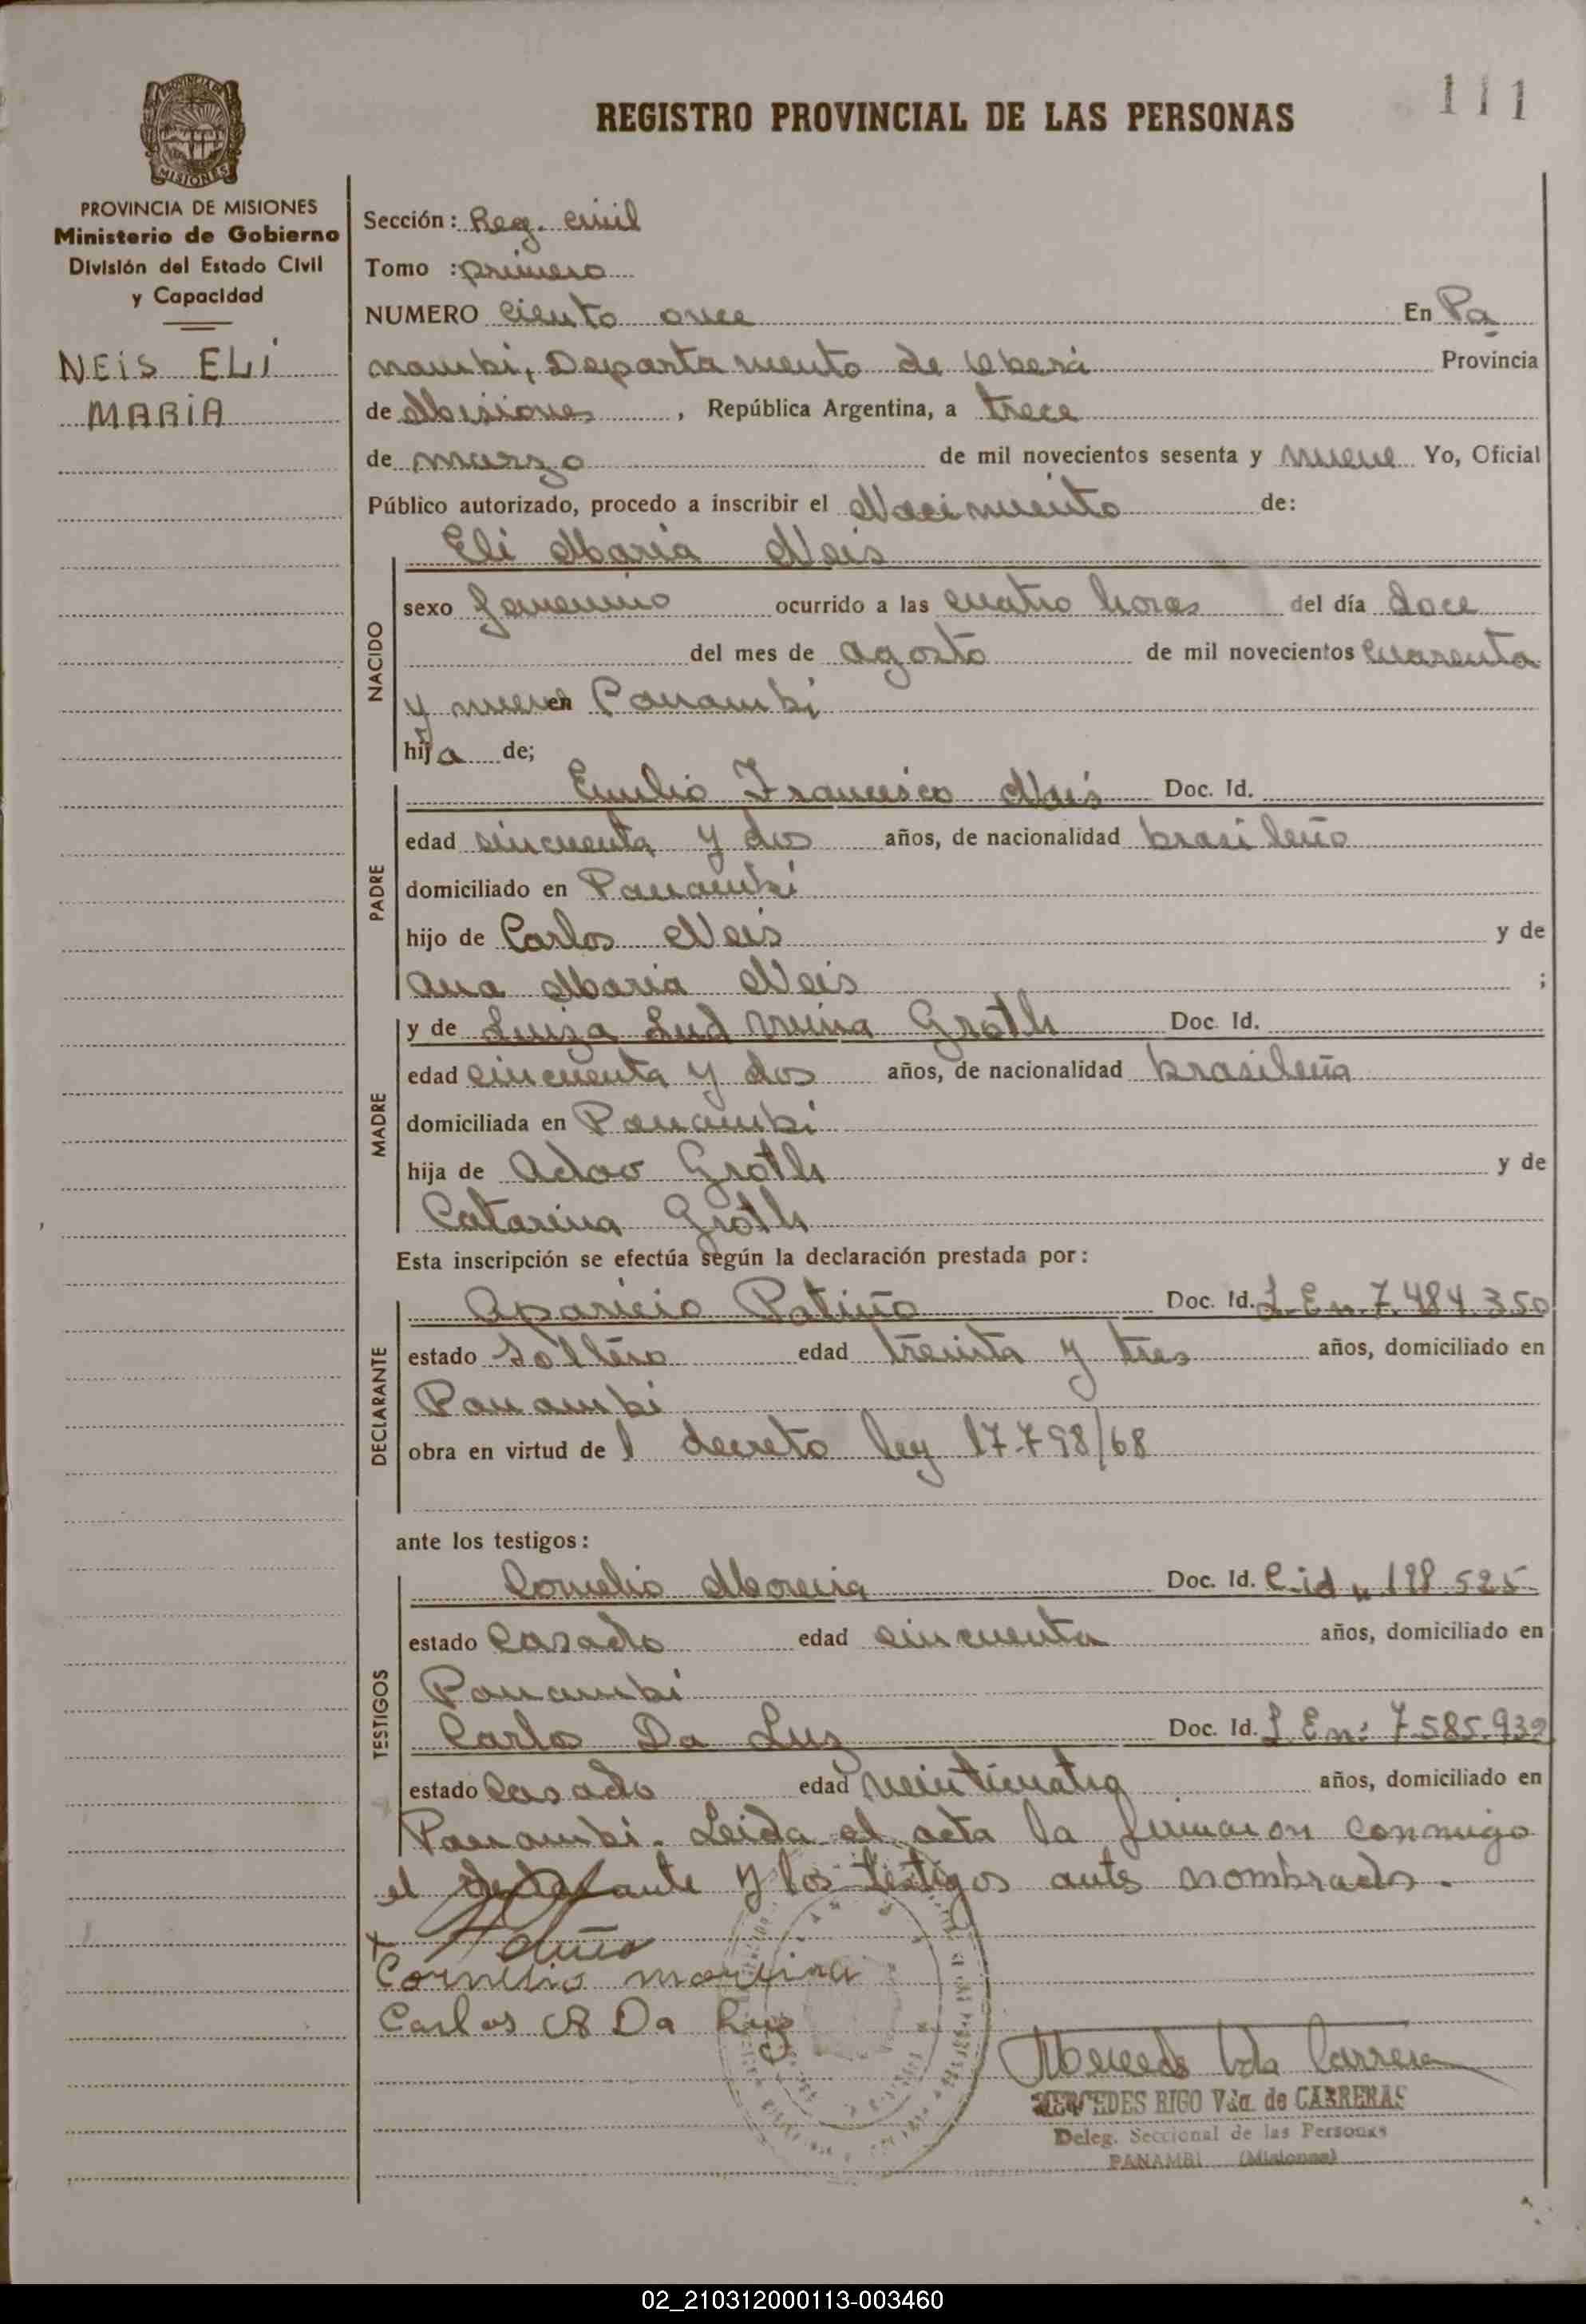 111
REGISTRO PROVINCIAL DE LAS PERSONAS
PROVINCIA DE MISIONES
Ministerio de Gobierno
División del Estado Civil
y Capacidad
NEIS ELI
MARIA
Sección: Reg. civil
Tomo : primero
NUMERO ciento once En Pa
nambi, Departamento de Oberá Provincia
de Misiones, República Argentina, a trece
de marzo de mil novecientos sesenta y nueve Yo, Oficial
Público autorizado, procedo a inscribir el Nacimiento de:
Eli Maria Neis
NACIDO
sexo femenino ocurrido a las cuatro horas del día doce
del mes de agosto de mil novecientos cuarenta
y nueve en Panambi
hija de;
PADRE
Emilio Francisco Neis Doc. Id.
edad sincuenta y dos años, de nacionalidad brasileño
domiciliado en Panambi
hijo de Carlos Neis y de
Ana Maria Neis ;
MADRE
y de Luiza Ludmina Groth Doc. Id.
edad cincuenta y dos años, de nacionalidad brasileña
domiciliada en Panambi
hija de Adao Groth y de
Catarina Groth
Esta inscripción se efectúa según la declaración prestada por:
DECLARANTE
Aparicio Patiño Doc. Id. L En 7.484.350
estado Soltero edad treinta y tres años, domiciliado en
Panambi
obra en virtud del decreto ley 17.798/68
ante los testigos:
TESTIGOS
Cornelio Moreira Doc. Id. C.id n 188.525
estado Casado edad cincuenta años, domiciliado en
Panambi
Carlos Da Luz Doc. Id. L En: 7.585.932
estado Casado edad veinticuatro años, domiciliado en
Panambi. Leida el acta la firmaron conmigo
el y los testigos antes nombrados.
Cornelio moreira
Carlos Da Luz
Mercedes Vda Carrera
MERCEDES RIGO Vda. de CARRERAS
Deleg. Seccional de las Personas
PANAMBI (Misiones)
02_210312000113-003460